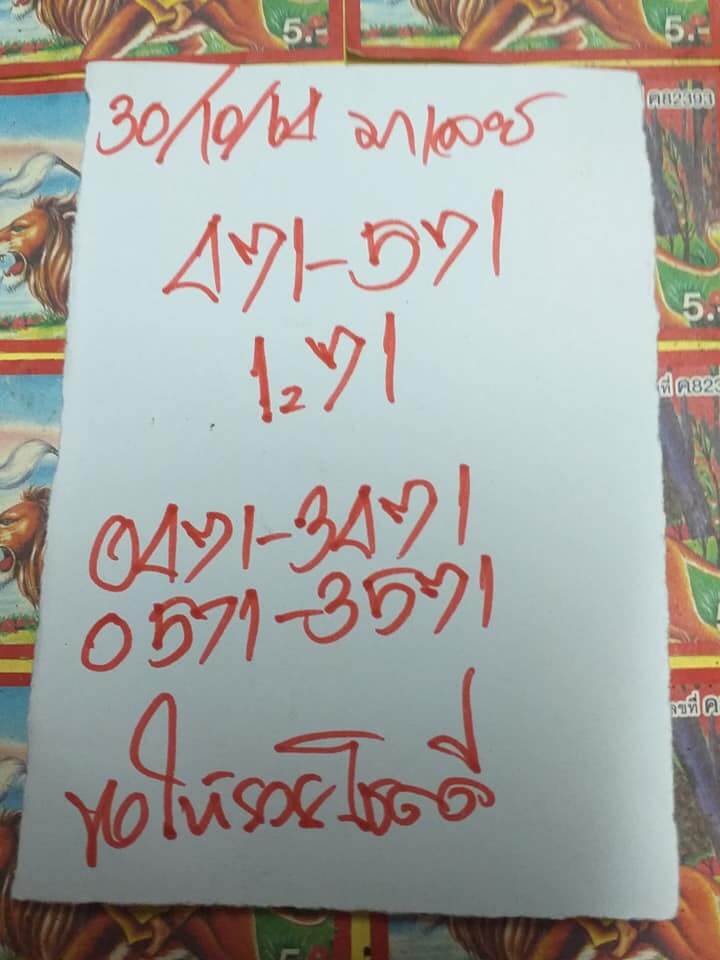 5.-
5.-
ค82393
30/10/61 มาเลย์
471-571
5.-
1271
ที่ ค823
0471-3471
0571-3571
ลขที่ ค8
ขอให้รวยโชคดี
5.-
5.-